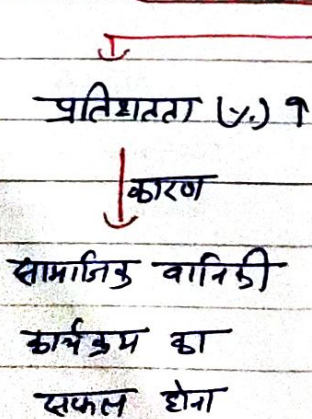 प्रतिशतता (%) ↑
कारण
सामाजिक वानिकी
कार्यक्रम का
सफल होना